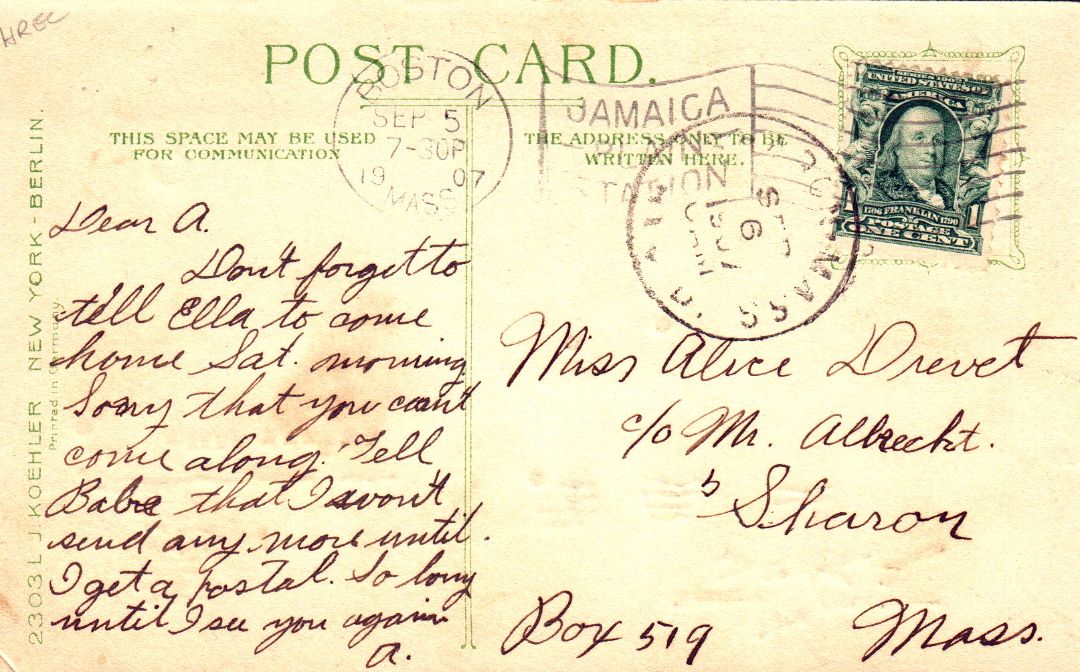 HREC
POST CARD.
THIS SPACE MAY BE USED
FOR COMMUNICATION
THE ADDRESS ONLY TO BE
WRITTEN HERE.
BOSTON
SEP 5
7-30P
1907
MASS.
JAMAICA
PLAIN
STATION
SEP
6
MASS
UNITED STATES OF
AMERICA
1706 FRANKLIN 1790
1 POSTAGE 1
ONE CENT
Dear A.
Don't forget to
tell Ella to come
home Sat. morning
Sorry that you can't
come along. Tell
Babe that I won't
send any more until
I get a postal. So long
until I see you again
A.
Miss Alice Drevet
c/o Mr. Albrecht.
Sharon
Box 519 Mass.
2303 L J. KOEHLER NEW YORK - BERLIN.
Printed in Germany